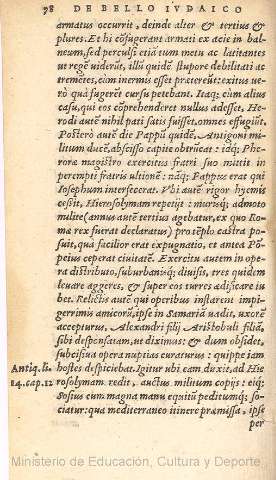 78 DE BELLO IVDAICO
armatus occurrit, deinde alter & tertius &
plures. Et hi cõfugerant armati ex acie in bal-
neum, sed perculsi etiã tum metu ac latitantes
ut regẽ uiderũt, illũ quidẽ stupore debilitati ac
tremẽtes, cùm inermis esset prætereũt: exitus ue-
rò quà fugeret cursu petebant. Itaq; cum alius
casu, qui eos cõprehenderet nullus adesset, He-
rodi autẽ nihil pati satis fuisset, omnes effugiũt.
Posterò autẽ die Pappũ quidẽ, Antigoni mi-
litum ducẽ, abscisso capite obtrũcat: idq; Phe-
roræ magistro exercitus fratri suo mittit in
perempti fratris ultionẽ: nãq; Pappus erat qui
Iosephum interfecerat. Vbi autẽ rigor hyemis
cessit, Hierosolymam repetijt: muroq; admoto
milite (annus autẽ tertius agebatur, ex quo Ro
mæ rex fuerat declaratus) pro tẽplo castra po-
suit, quà facilior erat expugnatio, et antea Põ-
peius ceperat ciuitatẽ. Exercitu autem in ope-
ra distributo, suburbanisq; diuisis, tres quidem
leuare aggeres, & super eos turres ædificare iu
bet. Relictis autẽ qui operibus instarent impi-
gerrimis amicorũ, ipse in Samariã uadit, uxorẽ
accepturus, Alexandri filij Aristobuli filiã,
sibi desponsatam, ut diximus: & dum obsidet,
subcisiua opera nuptias curaturus: quippe iam
hostes despiciebat. Igitur ubi eam duxit, ad Hie
Antiq. li.
14. cap. 12
rosolymam redit, auctus milium copijs: eiq;
Sosius cum magna manu equitũ peditumq; so-
ciatur: qua mediterraneo itinere præmissa, ipse
per
Ministerio de Educación, Cultura y Deporte